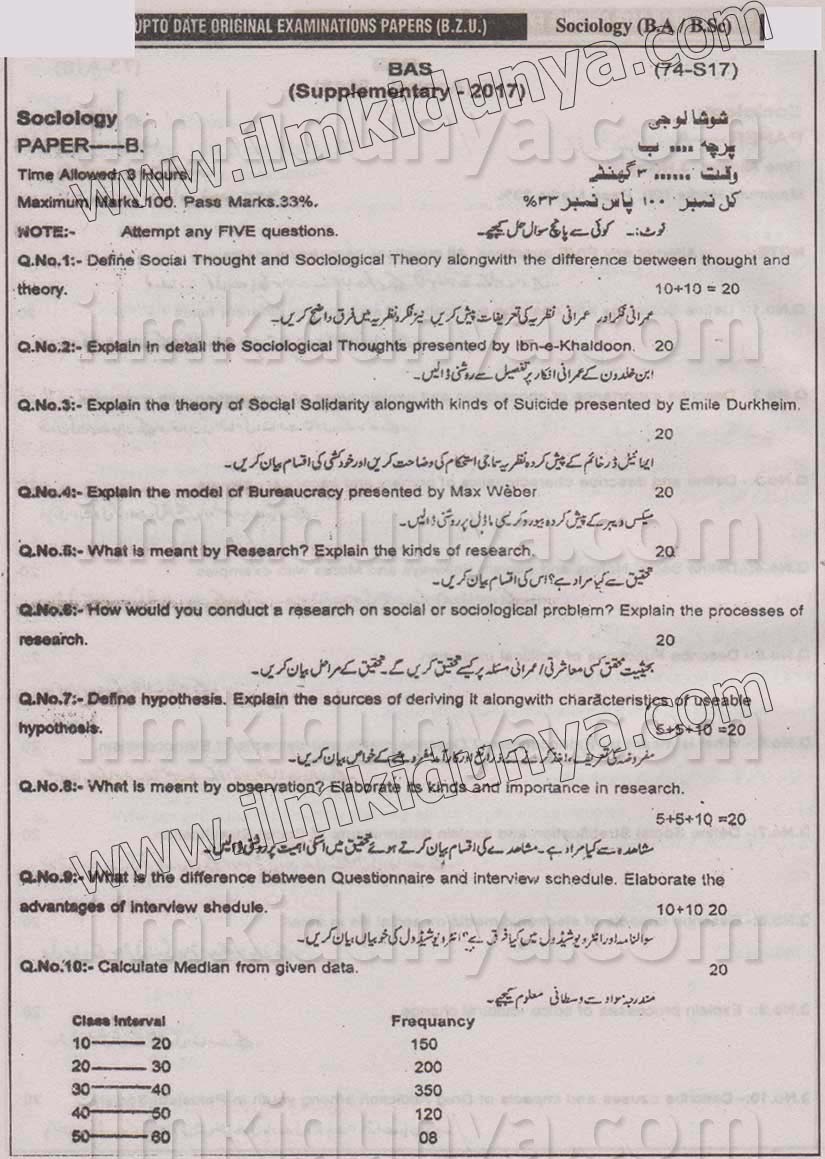 UPTO DATE ORIGINAL EXAMINATIONS PAPERS (B.Z.U.) Sociology (B.A / B.Sc)
BAS (74-S17)
(Supplementary - 2017)
Sociology شوشالوجی
PAPER-----B. پرچہ .... ب
Time Allowed: 3 Hours. وقت ...... ۳ گھنٹے
Maximum Marks.100. Pass Marks.33%. کل نمبر ۱۰۰ پاس نمبر ۳۳%
NOTE:- Attempt any FIVE questions. نوٹ:۔ کوئی سے پانچ سوال حل کیجیے۔
Q.No.1:- Define Social Thought and Sociological Theory alongwith the difference between thought and
theory. 10+10 = 20
عمرانی فکر اور عمرانی نظریہ کی تعریفات پیش کریں نیز فکر و نظریہ میں فرق واضح کریں۔
Q.No.2:- Explain in detail the Sociological Thoughts presented by Ibn-e-Khaldoon. 20
ابن خلدون کے عمرانی افکار پر تفصیل سے روشنی ڈالیں۔
Q.No.3:- Explain the theory of Social Solidarity alongwith kinds of Suicide presented by Emile Durkheim.
20
ایمائیل ڈرخائم کے پیش کردہ نظریہ سماجی استحکام کی وضاحت کریں اور خودکشی کی اقسام بیان کریں۔
Q.No.4:- Explain the model of Bureaucracy presented by Max Weber 20
میکس ویبر کے پیش کردہ بیوروکریسی ماڈل پر روشنی ڈالیں۔
Q.No.5:- What is meant by Research? Explain the kinds of research. 20
تحقیق سے کیا مراد ہے؟ اس کی اقسام بیان کریں۔
Q.No.6:- How would you conduct a research on social or sociological problem? Explain the processes of
research. 20
بحیثیت محقق کسی معاشرتی/عمرانی مسئلہ پر کیسے تحقیق کریں گے۔ تحقیق کے مراحل بیان کریں۔
Q.No.7:- Define hypothesis. Explain the sources of deriving it alongwith characteristics of useable
hypothesis. 5+5+10 =20
مفروضہ کی تعریف، اخذ کرنے کے ذرائع اور کارآمد مفروضے کے خواص بیان کریں۔
Q.No.8:- What is meant by observation? Elaborate its kinds and importance in research.
5+5+10 =20
مشاہدہ سے کیا مراد ہے۔ مشاہدے کی اقسام بیان کرتے ہوئے تحقیق میں اسکی اہمیت پر روشنی ڈالیں۔
Q.No.9:- What is the difference between Questionnaire and interview schedule. Elaborate the
advantages of interview shedule. 10+10 20
سوالنامہ اور انٹرویو شیڈول میں کیا فرق ہے؟ انٹرویو شیڈول کی خوبیاں بیان کریں۔
Q.No.10:- Calculate Median from given data. 20
مندرجہ مواد سے وسطانی معلوم کیجیے۔
Class Interval Frequancy
10—— 20 150
20—— 30 200
30——40 350
40——50 120
50——60 08
www.ilmkidunya.com
www.ilmkidunya.com
ilmkidunya.com
ilmkidunya.com
ilmkidunya.com
ilmkidunya.com
ilmkidunya.com
ilmkidunya.com